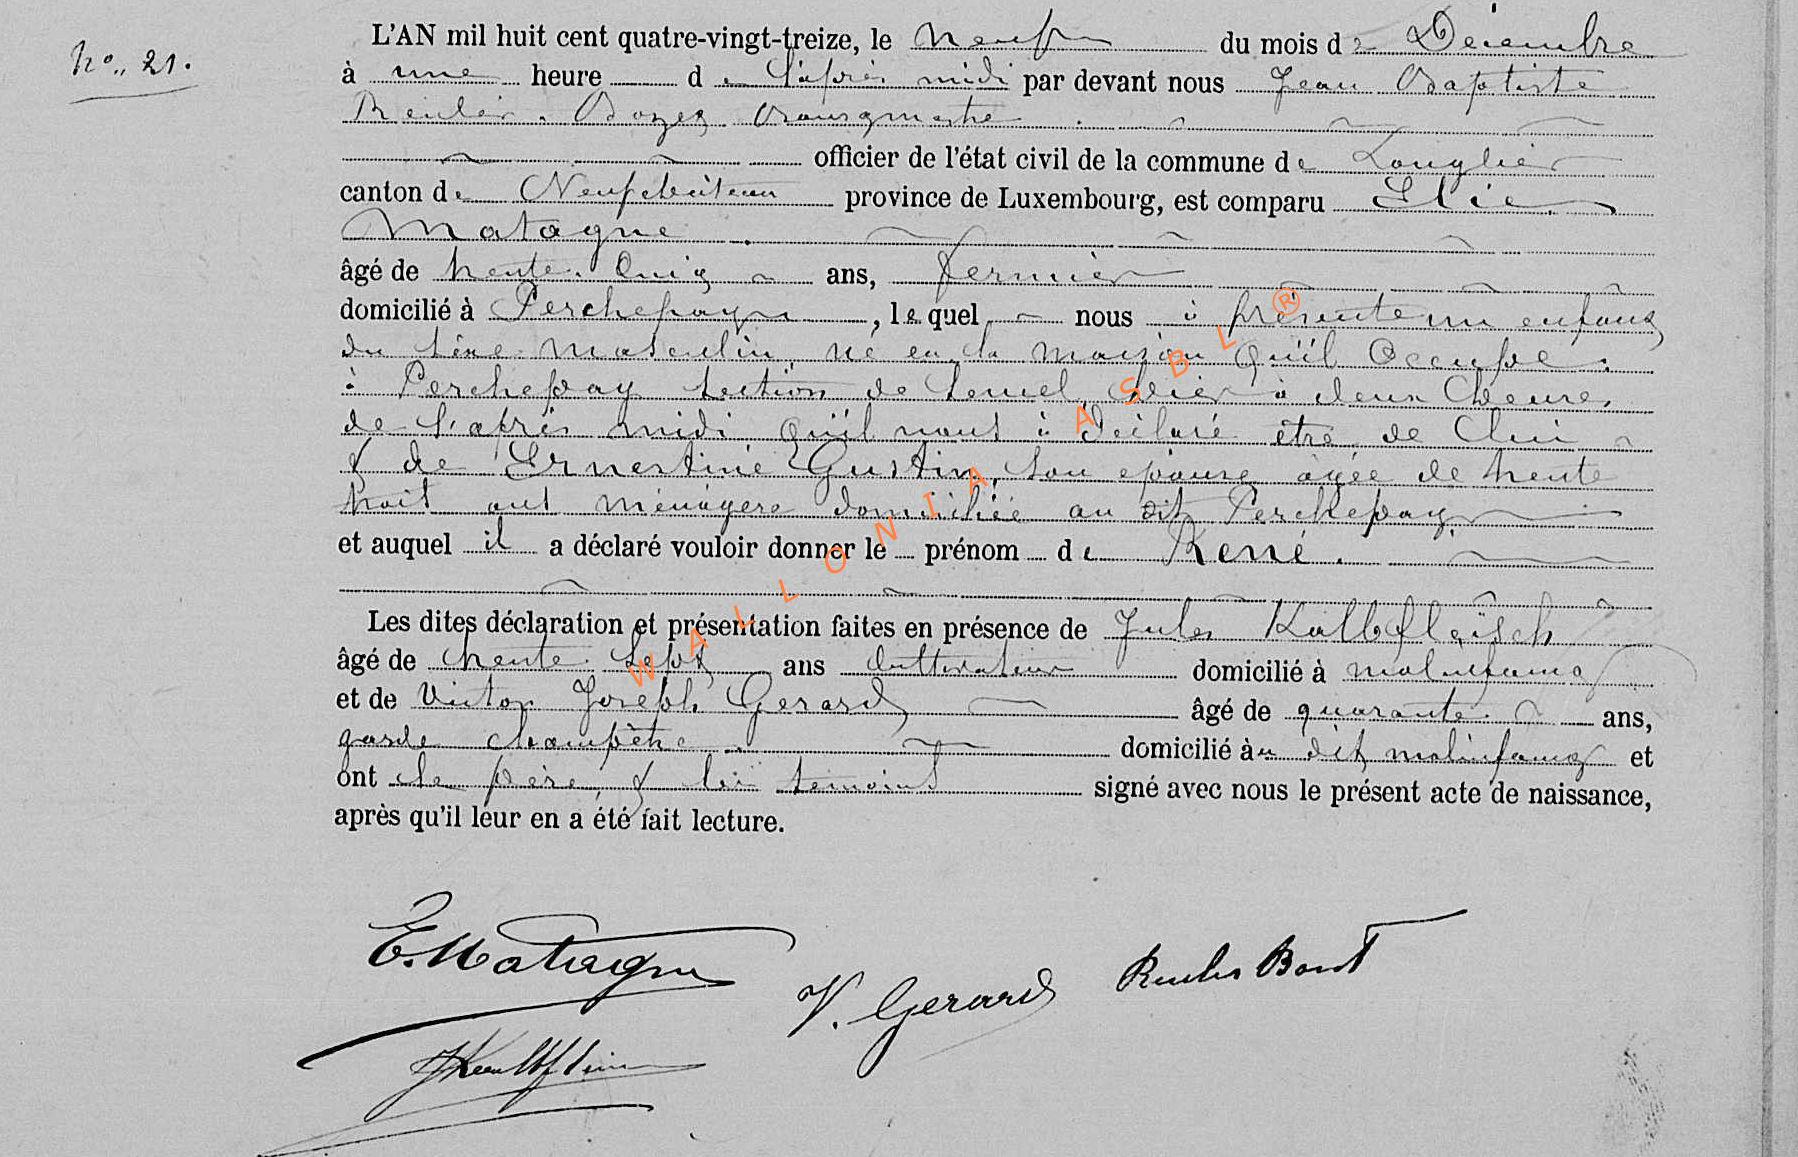 N°., 21.
L'AN mil huit cent quatre-vingt-treize, le neuf du mois de Décembre
à une heure de l'après midi par devant nous Jean Baptiste
Bourgmestre
officier de l'état civil de la commune de Longlier
canton de Neufchâteau province de Luxembourg, est comparu Elie
Matagne
âgé de trente cinq ans, fermier
domicilié à Perchepay, lequel nous à présenté un enfant
du sexe masculin né en la maison qu'il occupe
à Perchepay section de Semel hier à deux heures
de l'après midi qu'il nous à déclaré être de lui
& de Ernestine Gustin son épouse âgée de trente
huit ans ménagère domiciliée au dit Perchepay
et auquel il a déclaré vouloir donner le prénom de René.
Les dites déclaration et présentation faites en présence de Jules Kalbfleisch
âgé de trente sept ans cultivateur domicilié à molinfaing
et de Victor Joseph Gerard âgé de quarante ans,
garde champêtre domicilié au dit molinfaing et
ont le père & les témoins signé avec nous le présent acte de naissance,
après qu'il leur en a été fait lecture.
E. Matagne
V. Gerard
WALLONIA ASBL ®